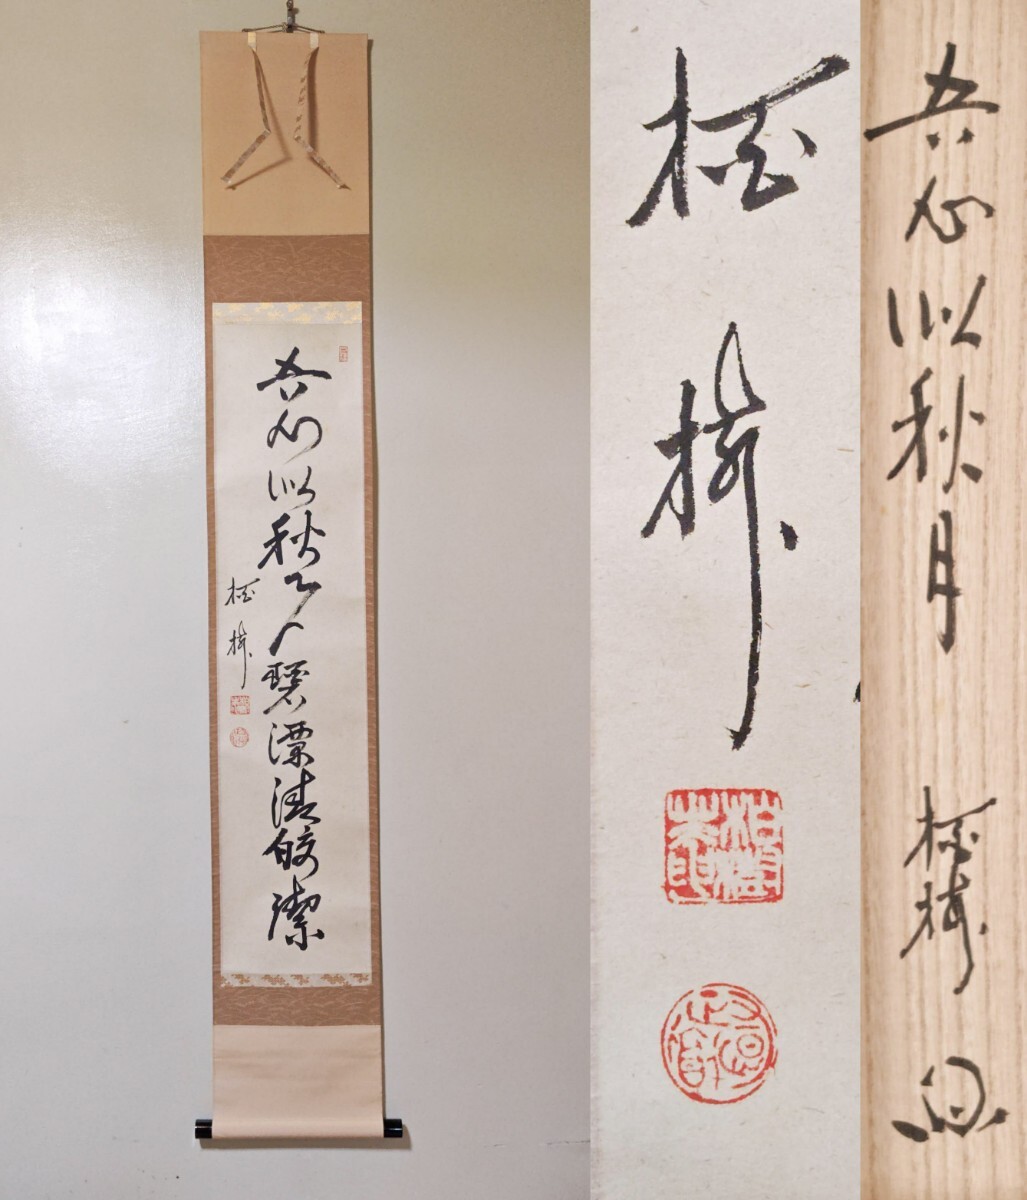 吾心似秋月碧潭清皎潔
栢樹
栢樹
吾心似秋月
栢樹